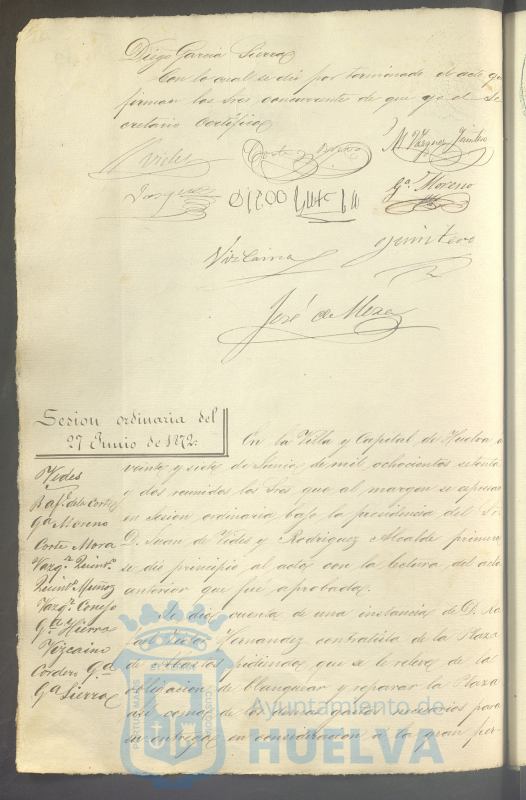 Diego Garcia Sierra
Con lo cual se dió por terminado el acto que
firman los Sres concurrentes de que yo el Se
cretario certifico
Vides
Corte y
M Vazquez Quintero
Gª Moreno
Vizcaino
Quintero
José de Meza
Sesion ordinaria del
27 Junio de 1872.
Vides
Raf. de la Corte
Gª Moreno
Corte Mora
Vazqz Quintº
Quintº Muñoz
Vazqz Conejo
Gª Hierra
Vizcaino
Cordero Gª
Gª Sierra
En la Villa y Capital de Huelva a
veinte y siete de Junio de mil ochocientos setenta
y dos reunidos los Sres que al margen se espresan
en sesion ordinaria bajo la presidencia del Sr
D. Juan de Vides y Rodriguez Alcalde primero
se dió principio al acto con la lectura del acta
anterior que fué aprobada.
Se dió cuenta de una instancia de D.
Hernandez contratista de la Plaza
de Abastos pidiendo que se le releve de la
obligacion de blanquear y reparar la Plaza
asi como de los demas gastos necesarios para
su entrega en consideracion a la gran per-
Ayuntamiento de
HUELVA